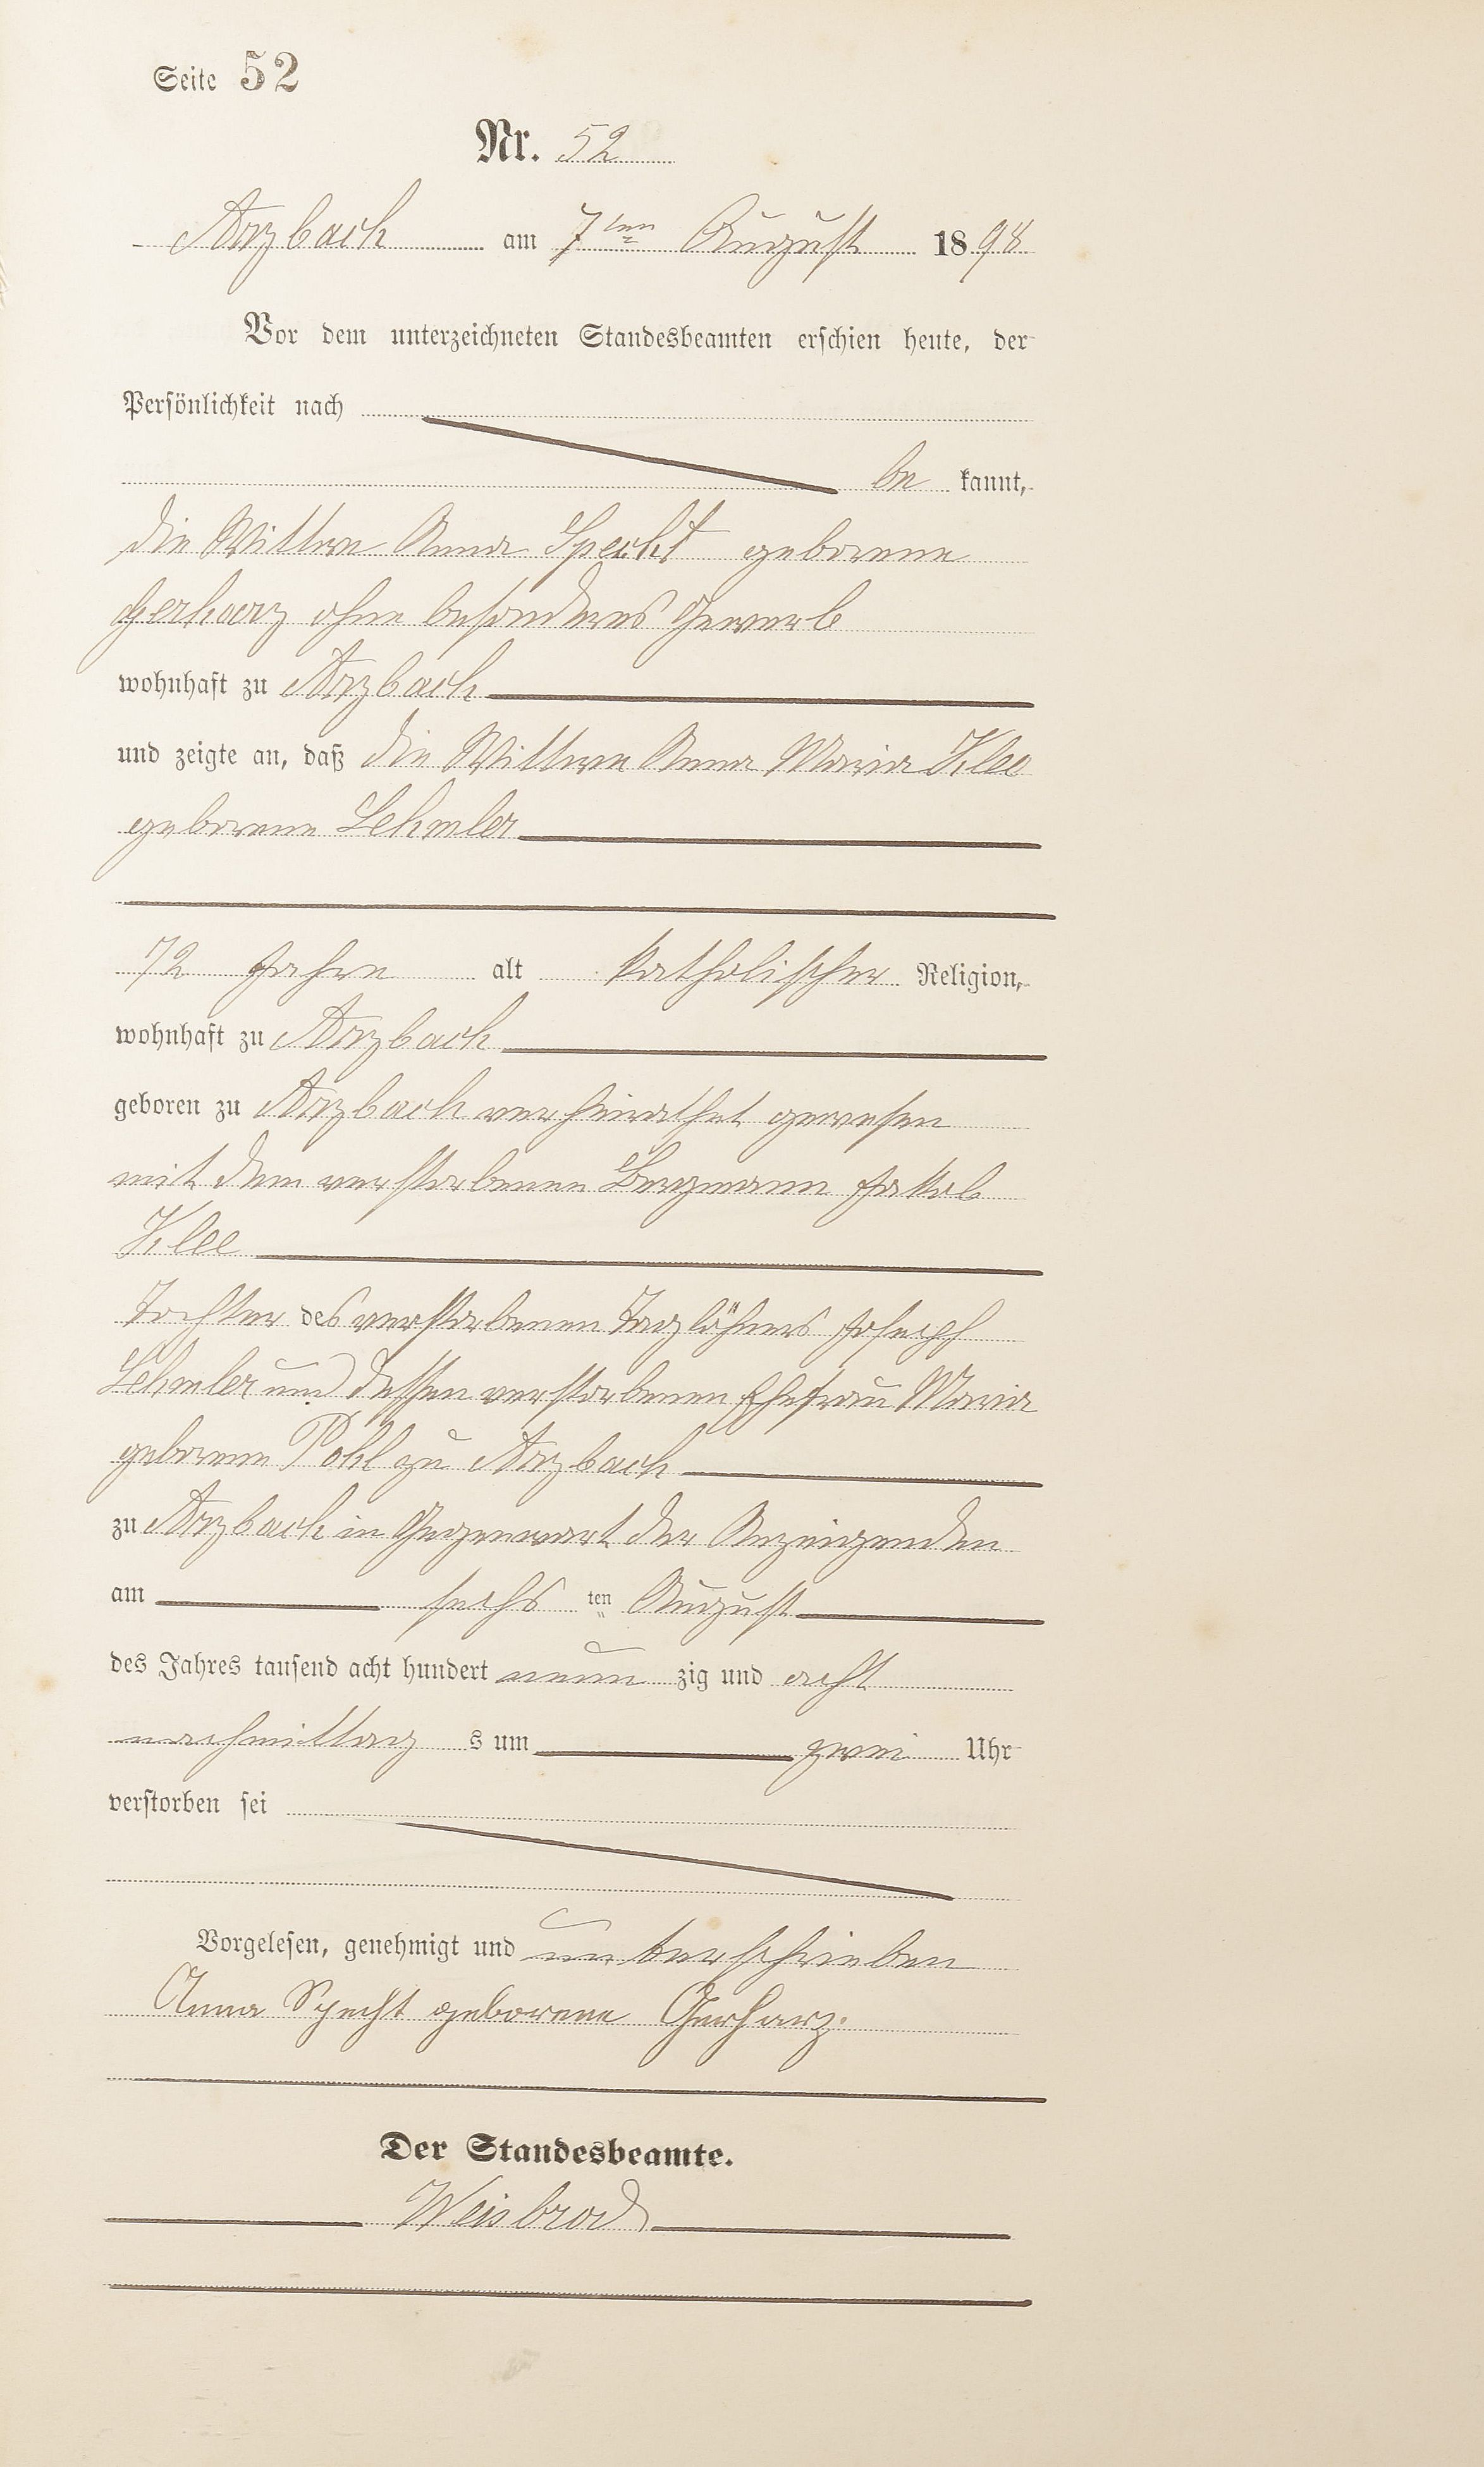 Seite 52
Nr. 52
Arzbach am 7ten August 1898
Vor dem unterzeichneten Standesbeamten erschien heute, der
Persönlichkeit nach
be kannt,
die Wittwe Anna Specht geborene
Gerharz ohne besonderes Gewerb
wohnhaft zu Arzbach
und zeigte an, daß die Wittwe Anna Maria Klee
geborene Lehmler
72 Jahre alt katholischer Religion,
wohnhaft zu Arzbach
geboren zu Arzbach verheirathet gewesen
mit dem verstorbenen Bergmann Jakob
Klee
Tochter des verstorbenen Taglöhners Joseph
Lehmler und dessen verstorbenen Ehefrau Maria
geborene Pohl zu Arzbach
zu Arzbach in Gegenwart der Anzeigenden
am sechs ten August
des Jahres tausend acht hundert neun zig und acht
nachmittag s um zwei Uhr
verstorben sei
Vorgelesen, genehmigt und unterschrieben
Anna Specht geborene Gerharz.
Der Standesbeamte.
Weisbrod